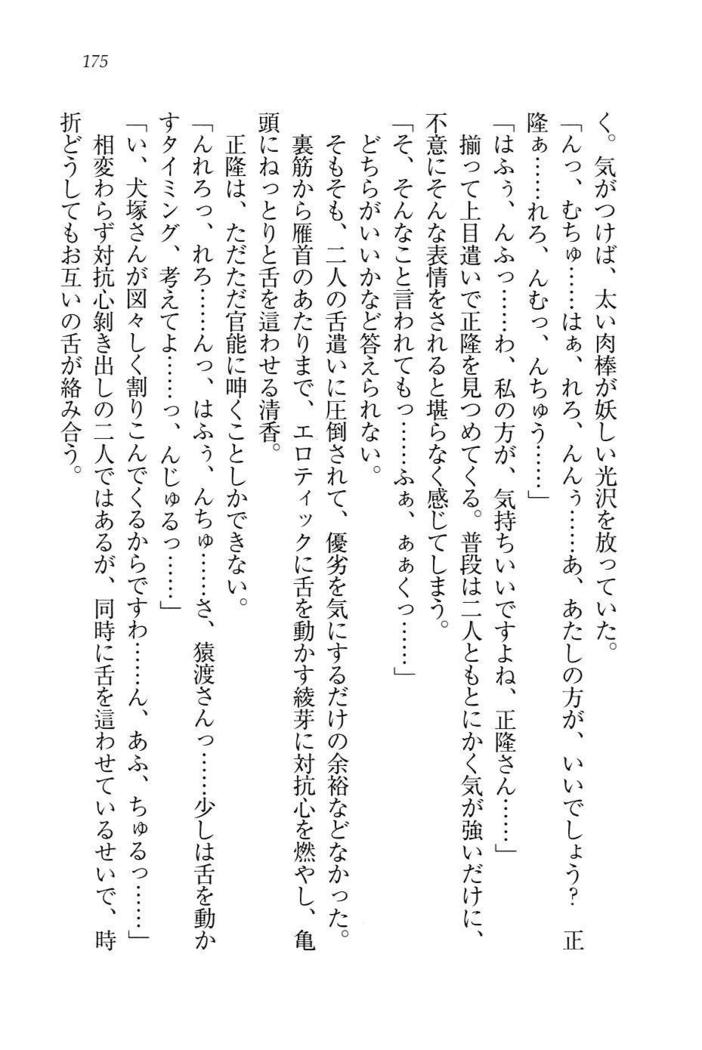 175
く。気がつけば、太い肉棒が妖しい光沢を放っていた。
「んっ、むちゅ……はぁ、れろ、んんぅ……あ、あたしの方が、いいでしょう？　正
隆ぁ……れろ、んむっ、んちゅう……」
「はふぅ、んふっ……わ、私の方が、気持ちいいですよね、正隆さん……」
揃って上目遣いで正隆を見つめてくる。普段は二人ともとにかく気が強いだけに、
不意にそんな表情をされると堪らなく感じてしまう。
「そ、そんなこと言われてもっ……ふぁ、ぁぁくっ……」
どちらがいいかなど答えられない。
そもそも、二人の舌遣いに圧倒されて、優劣を気にするだけの余裕などなかった。
裏筋から雁首のあたりまで、エロティックに舌を動かす綾芽に対抗心を燃やし、亀
頭にねっとりと舌を這わせる清香。
正隆は、ただただ官能に呻くことしかできない。
「んれろっ、れろ……んっ、はふぅ、んちゅ……さ、猿渡さんっ……少しは舌を動か
すタイミング、考えてよ……っ、んじゅるっ……」
「い、犬塚さんが図々しく割りこんでくるからですわ……ん、あふ、ちゅるっ……」
相変わらず対抗心剝き出しの二人ではあるが、同時に舌を這わせているせいで、時
折どうしてもお互いの舌が絡み合う。